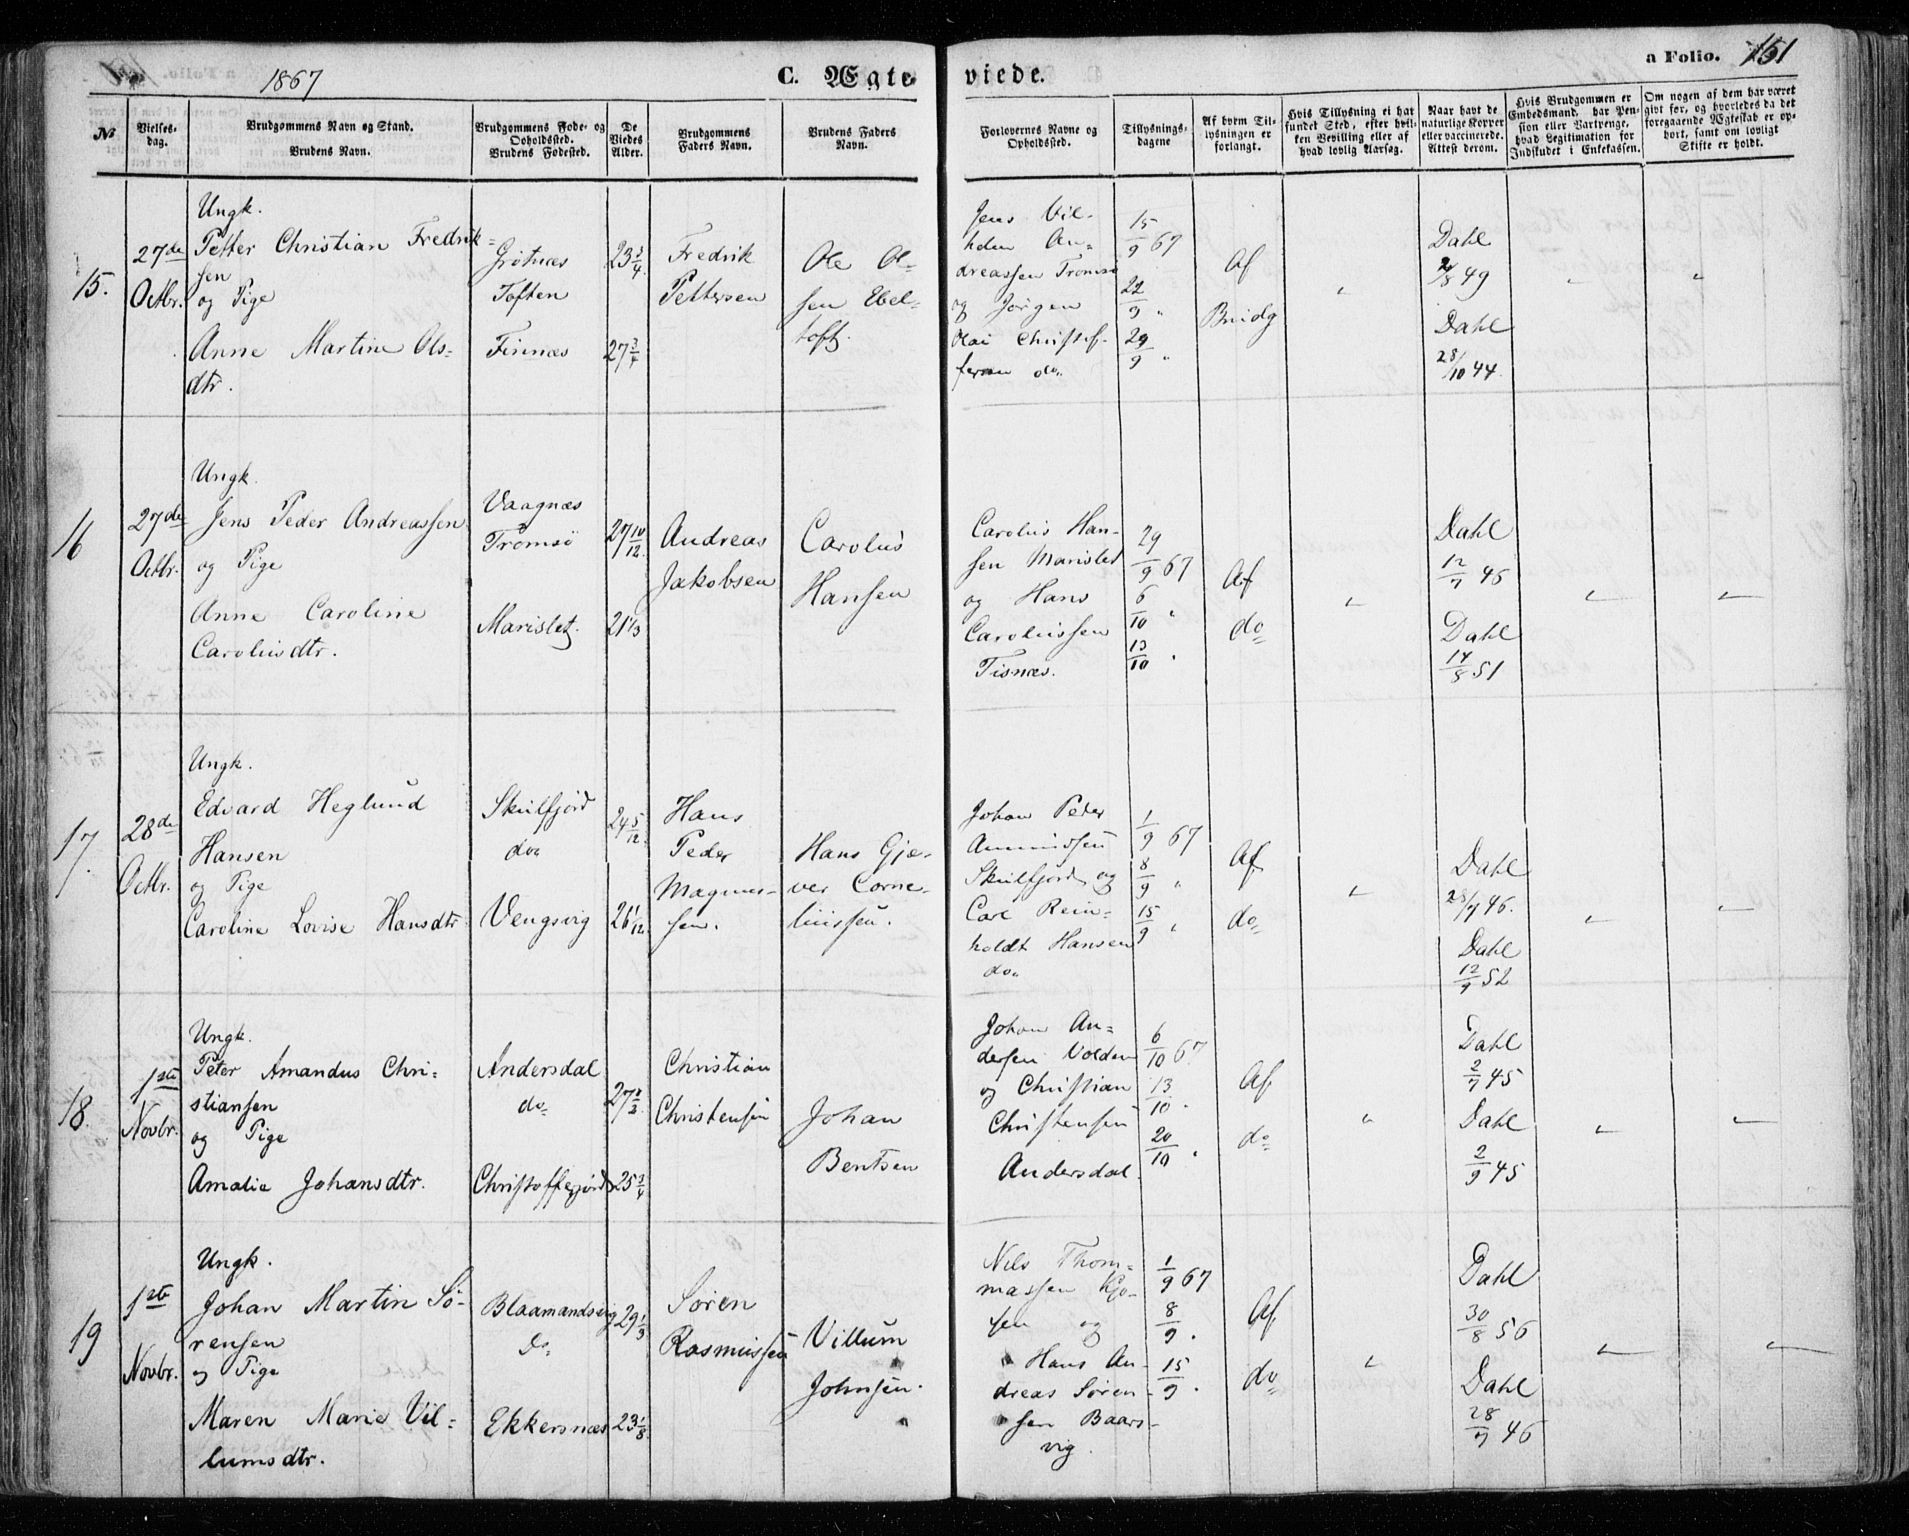 1867
C. Ægte
viede.
a Folio. 151
No
Vielses-
dag.
Brudgommens Navn og Stand.
Brudens Navn.
Brudgommens Føde- og
Opholdssted.
Brudens Fødested.
De
Viedes
Alder.
Brudgommens
Faders Navn.
Brudens Faders
Navn.
Forlovernes Navne og
Opholdssted.
Tillysnings-
dagene
Af hvem Til-
lysningen er
forlangt.
Hvis Tillysning ei har
fundet Sted, efter hvil-
ken Bevilling eller af
hvad lovlig Aarsag.
Naar havt de
naturlige Kopper
eller vaccinerede.
Attest derom.
Hvis Brudgommen er
Embedsmand, har Pen-
sion eller Vartpenge,
hvad Legitimation for
Indskudet i Enkekassen.
Om nogen af dem har været
givt før, og hvorledes da det
foregaaende Ægteskab er op-
hørt, samt om lovligt
Skifte er holdt.
15.
27de
Octbr.
Ungk.
Petter Christian Fredrik-
sen
og Pige
Anne Martine Ols-
dtr.
Grötnæs
Toften
Finnæs
23 3/4
27 3/4
Fredrik
Pettersen
Ole Ol-
sen Ebel-
toft.
Jens Vil-
helm An-
dreassen Tromsø
og Jørgen
Olai Christof-
fersen do.
15/9 67
22/9 "
29/9 "
Af
Brudg
"
Dahl
2/8 49
Dahl
28/10 44.
"
"
16
27de
Octbr.
Ungk.
Jens Peder Andreassen
og Pige
Anne Caroline
Carolusdtr.
Vaagnæs
Tromsö
Marislet.
27 10/12.
21 1/3
Andreas
Jakobsen
Carolus
Hansen
Carolus Han-
sen Marislet
og Hans
Carolussen
Tisnæs.
29/9 67
6/10 "
13/10 "
Af
do
"
Dahl
12/7 45
Dahl
14/8 51
"
"
17.
28de
Octbr.
Ungk.
Edvard Heglund
Hansen
og Pige
Caroline Lovise Hansdtr.
Skulfjörd
do.
Vengsvig
24 5/12.
26 1/12.
Hans
Peder
Magnus-
sen.
Hans Gjæ-
ver Corne-
liussen.
Johan Peder
Skulfjord og
Carl Rein-
holdt Hansen
do.
1/9 67
8/9 "
15/9 "
Af
do
"
Dahl
28/7 46.
Dahl
12/9 52
"
"
18.
1ste
Novbr.
Ungk.
Peter Amandus Chri-
stiansen
og Pige
Amalie Johansdtr.
Andersdal
do
Christofferfjörd
25 3/4
Christian
Christensen
Johan
Bentsen
Johan An-
dersen Volden
og Christian
Christensen
Andersdal.
6/10 67
13/10.
20/10 "
Af
do
"
Dahl
2/7 45
Dahl
2/9 45
"
"
19
1ste
Novbr.
Ungk.
Johan Martin Sö-
rensen
og Pige
Maren Marie Vil-
lumsdtr.
Blaamandsvig
Do
Ekkersnæs
29 1/3
23 1/8
Sören
Rasmussen
Villum
Johnsen.
Nils Thom-
massen Kjo-
sen og
Hans An-
dreas Sören-
sen Baars-
vig.
1/9 67
8/9.
15/9.
Af
do
"
Dahl
30/8 56
Dahl
28/7 46
"
"